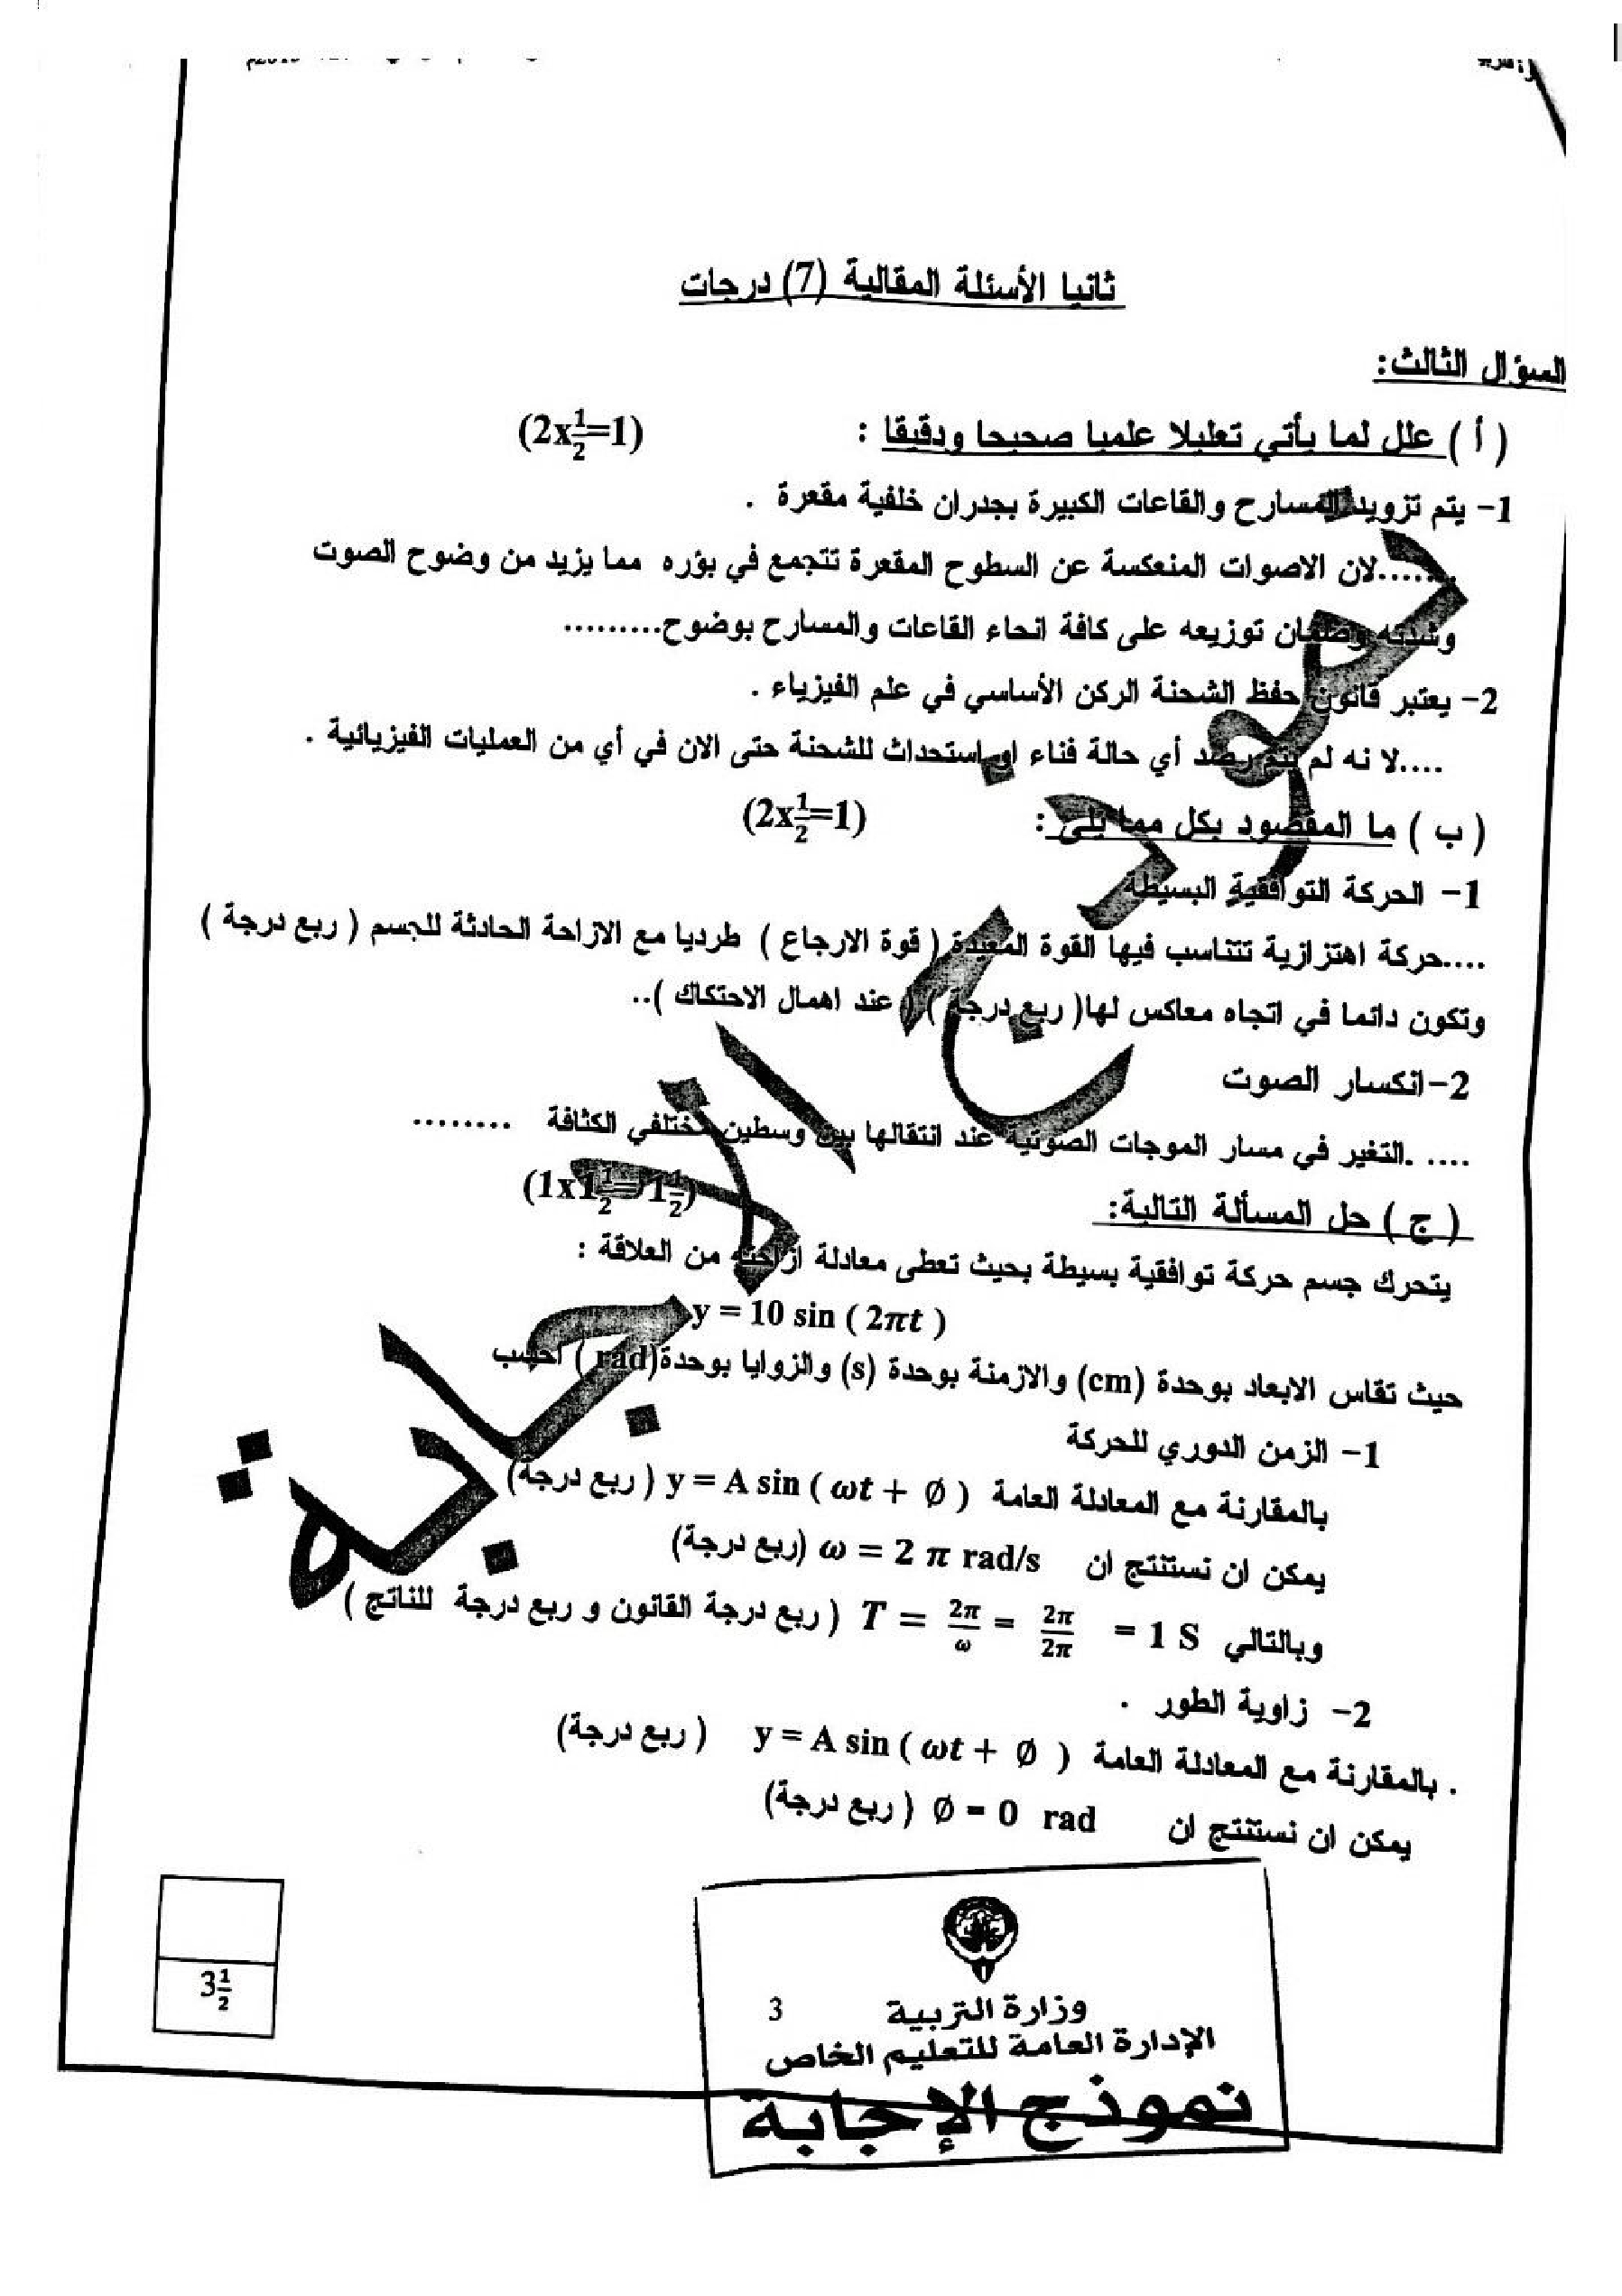 ثانيا الأسئلة المقالية (7) درجات
السؤال الثالث:
( أ ) علل لما يأتي تعليلا علميا صحيحا ودقيقا : (2x½=1)
1- يتم تزويد المسارح والقاعات الكبيرة بجدران خلفية مقعرة .
.......لان الاصوات المنعكسة عن السطوح المقعرة تتجمع في بؤره مما يزيد من وضوح الصوت
وشدته وضمان توزيعه على كافة انحاء القاعات والمسارح بوضوح.........
2- يعتبر قانون حفظ الشحنة الركن الأساسي في علم الفيزياء .
....لا نه لم يتم رصد أي حالة فناء او استحداث للشحنة حتى الان في أي من العمليات الفيزيائية .
( ب ) ما المقصود بكل مما يلي : (2x½=1)
1- الحركة التوافقية البسيطة
....حركة اهتزازية تتناسب فيها القوة المعيدة ( قوة الارجاع ) طرديا مع الازاحة الحادثة للجسم ( ربع درجة )
وتكون دائما في اتجاه معاكس لها( ربع درجة ) ( عند اهمال الاحتكاك )..
2-انكسار الصوت
.... .التغير في مسار الموجات الصوتية عند انتقالها بين وسطين مختلفي الكثافة ........
( ج ) حل المسألة التالية: (1x1½=1½)
يتحرك جسم حركة توافقية بسيطة بحيث تعطى معادلة ازاحته من العلاقة :
y = 10 sin ( 2πt )
حيث تقاس الابعاد بوحدة (cm) والازمنة بوحدة (s) والزوايا بوحدة(rad ) احسب
1- الزمن الدوري للحركة
بالمقارنة مع المعادلة العامة y = A sin ( ωt + ∅ ) ( ربع درجة)
يمكن ان نستنتج ان ω = 2 π rad/s (ربع درجة)
وبالتالي T = 2π/ω = 2π/2π = 1 S ( ربع درجة القانون و ربع درجة للناتج )
2- زاوية الطور .
. بالمقارنة مع المعادلة العامة y = A sin ( ωt + ∅ ) ( ربع درجة)
يمكن ان نستنتج ان ∅ = 0 rad ( ربع درجة)
3½
3
وزارة التربية
الإدارة العامة للتعليم الخاص
نموذج الإجابة
نموذج الإجابة